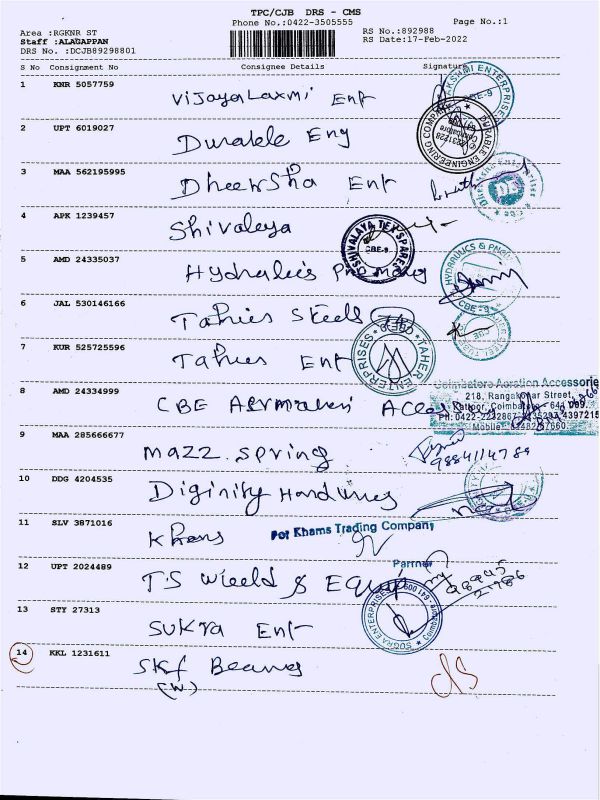 TPC/CJB DRS - CMS
Phone No.:0422-3505555
Page No.:1
Area :RGKNR ST
Staff :ALAGAPPAN
DRS No. :DCJB89298801
RS No.:892988
RS Date:17-Feb-2022
S No Consignment No Consignee Details Signature
1 KNR 5057759 Vijayalaxmi Ent
LAKSHMI ENTERPRISES CBE-9
2 UPT 6019027 Durable Eng
DURABLE ENGINEERING COMPANY
3 MAA 562195995 Dheersha Ent
4 APK 1239457 Shivalaya
SHIVALAYA TEX SPARES CBE-9
5 AMD 24335037 Hydralics
HYDRAULICS & CBE-9
6 JAL 530146166 Tahies Steels
7 KUR 525725596 Tahies Ent
TAHER ENTERPRISES
8 AMD 24334999 CBE
Coimbatore Aeration Accessories
218, Rangakonar Street,
Kattoor, Coimbatore - 641 009.
Ph: 0422-2232867
Mobile
9 MAA 285666677 Mazz. Spring
9884114789
10 DDG 4204535 Diginity
11 SLV 3871016 Khans
For Khams Trading Company
Partner
12 UPT 2024489 T.S Wield & Equip
13 STY 27313 Sukra Ent
ENTERPRISES Coimbatore - 641 009
14 KKL 1231611 SKf Bearing
(W)